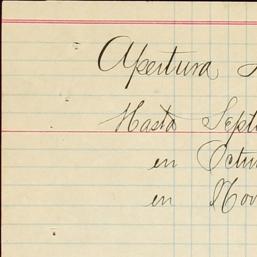 Apertura
Hasta Sept
en Octu
en Nov